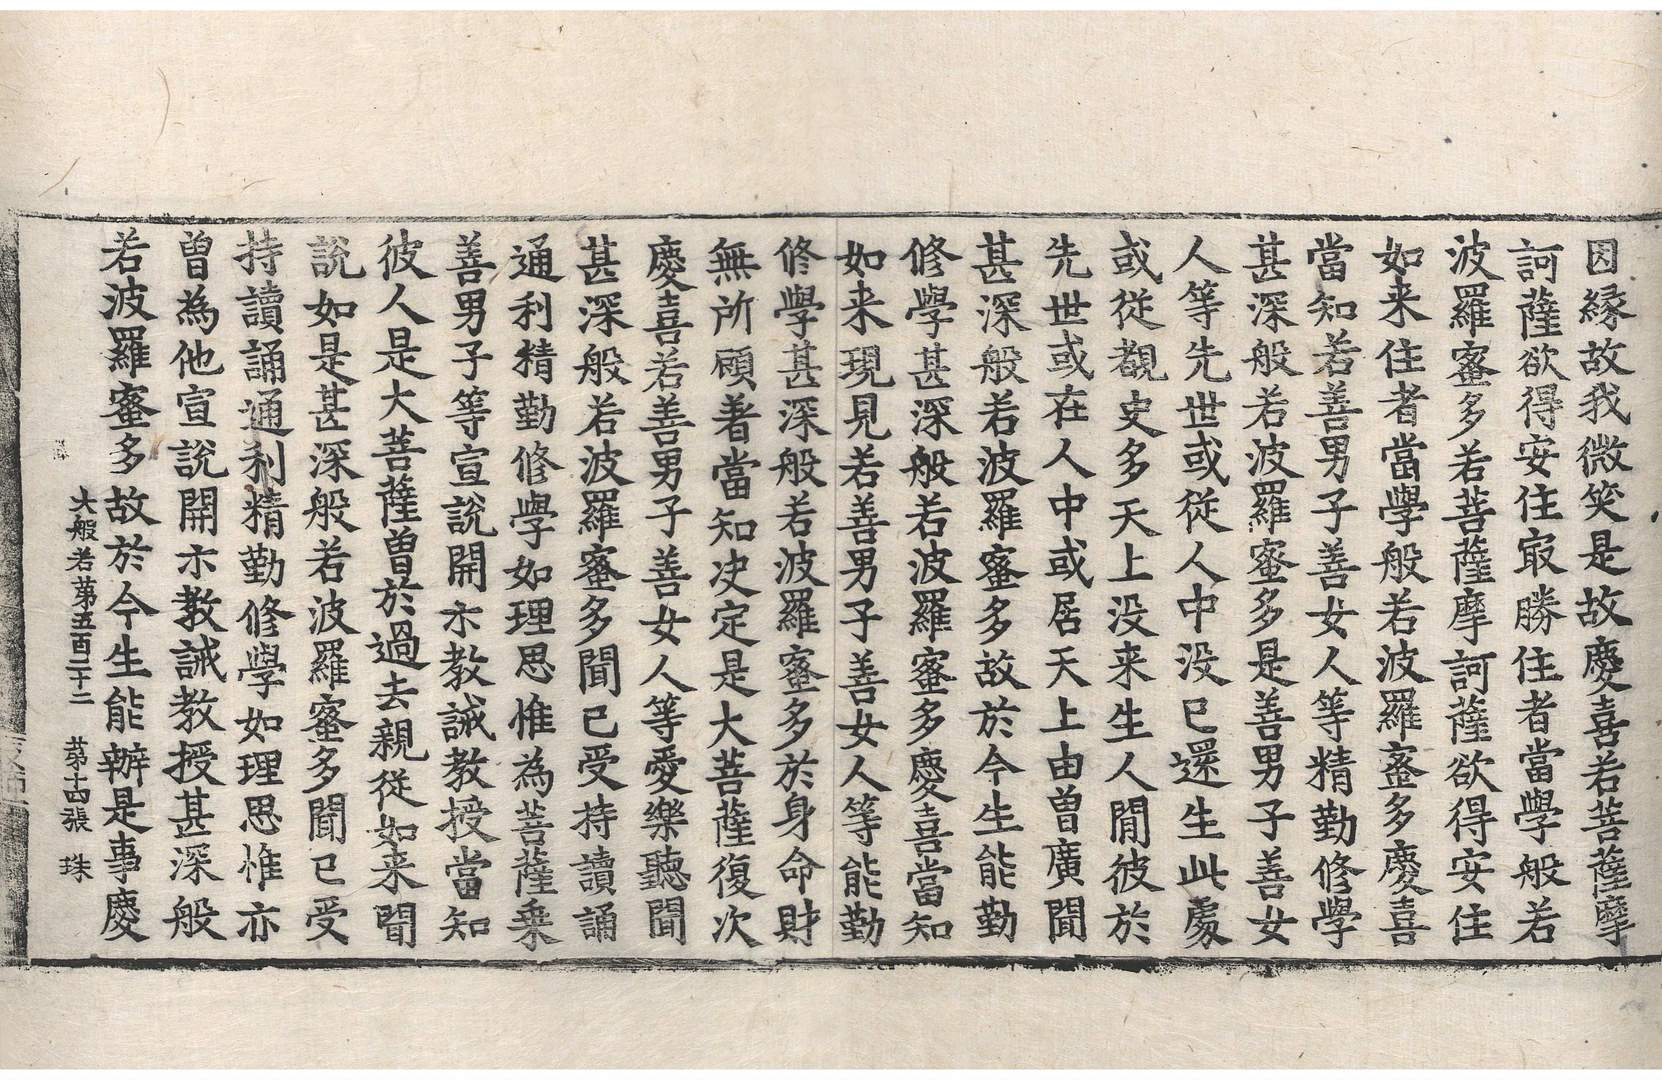 因緣故我微笑是故慶喜若菩薩摩
訶薩欲得安住㝡勝住者當學般若
波羅蜜多若菩薩摩訶薩欲得安住
如来住者當學般若波羅蜜多慶喜
當知若善男子善女人等精勤修學
甚深般若波羅蜜多是善男子善女
人等先世或從人中没已還生此處
或從覩史多天上没来生人間彼於
先世或在人中或居天上由曽廣聞
甚深般若波羅蜜多故於今生能勤
修學甚深般若波羅蜜多慶喜當知
如来現見若善男子善女人等能勤
修學甚深般若波羅蜜多於身命財
無所顧著當知决定是大菩薩復次
慶喜若善男子善女人等愛樂聽聞
甚深般若波羅蜜多聞已受持讀誦
通利精勤修學如理思惟為菩薩乗
善男子等宣說開示教誡教授當知
彼人是大菩薩曽於過去親從如来聞
說如是甚深般若波羅蜜多聞已受
持讀誦通利精勤修學如理思惟亦
曽為他宣說開示教誡教授甚深般
若波羅蜜多故於今生能辦是事慶
大般若第五百二十二 第十四張 珠